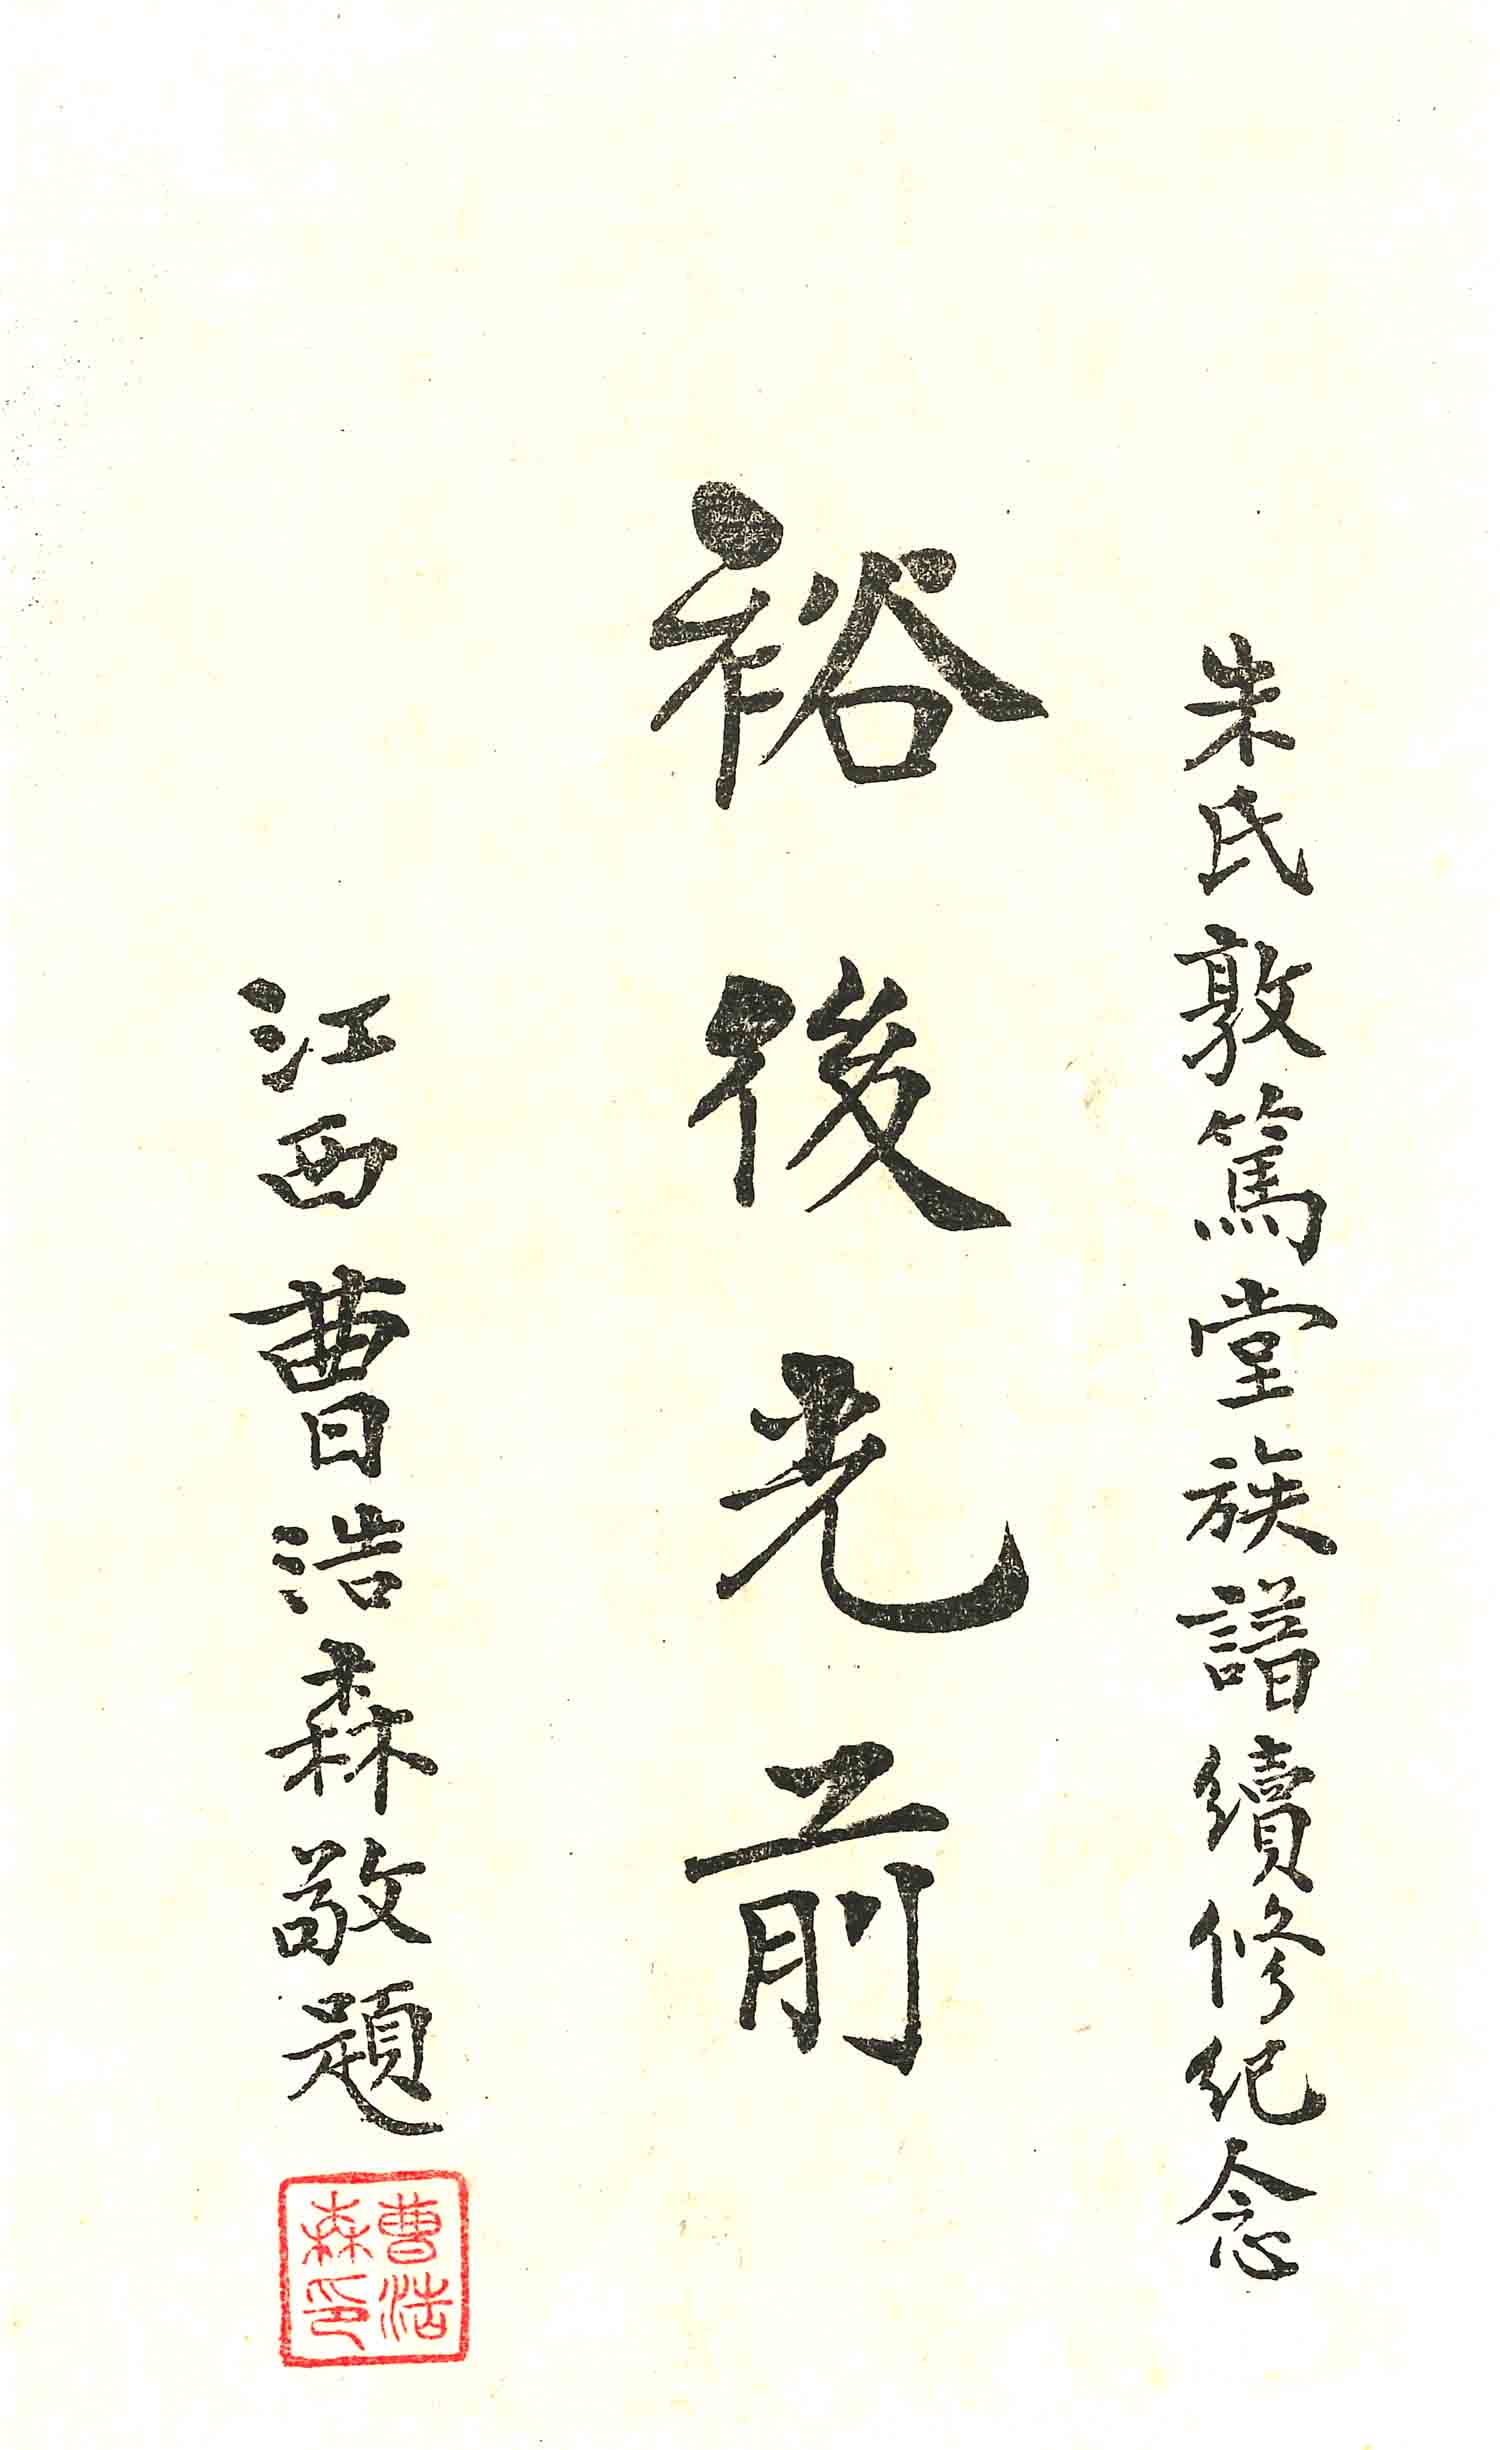 朱氏敦篤堂族譜續修紀念
裕後光前
江西曹浩森敬題
曹浩
森印